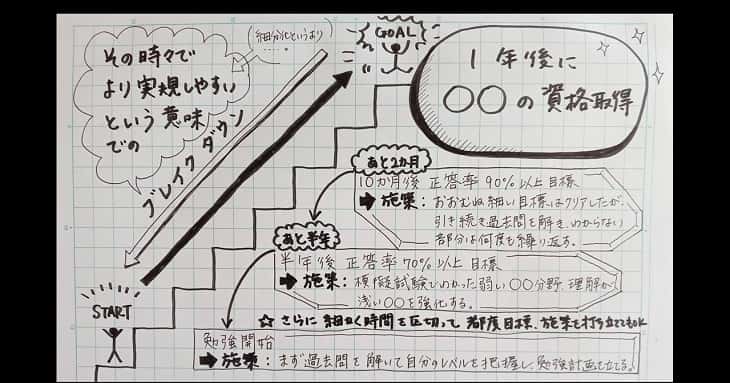 その時々で
より実現しやすい
という意味
での
(細分化というより
……。
ブレイクダウン
GOAL
1年後に
○○の資格取得
あと2か月
10か月後 正答率90%以上目標
➡施策:おおむね細い目標はクリアしたが、
引き続き過去問を解き、わからない
部分は何度も繰り返す。
あと半年
半年後 正答率70%以上目標
➡施策:模擬試験でわかった弱い○○分野、理解が
浅い○○を強化する。
START
☆さらに細かく時間を区切って都度目標、施策を打ち立てもOK
勉強開始
➡施策:まず過去問を解いて自分のレベルを把握し、勉強計画を立てる。